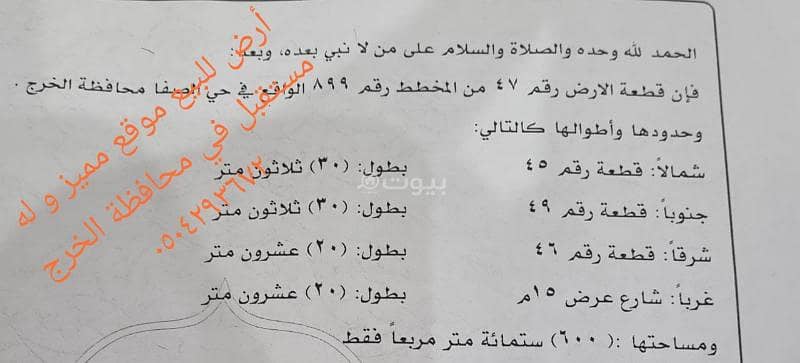 الحمد لله وحده والصلاة والسلام على من لا نبي بعده، وبعد:
فإن قطعة الارض رقم ٤٧ من المخطط رقم ٨٩٩ الواقع في حي الصفا محافظة الخرج .
وحدودها وأطوالها كالتالي:
شمالاً: قطعة رقم ٤٥ بطول: (٣٠) ثلاثون متر
جنوباً: قطعة رقم ٤٩ بطول: (٣٠) ثلاثون متر
شرقاً: قطعة رقم ٤٦ بطول: (٢٠) عشرون متر
غرباً: شارع عرض ١٥م بطول: (٢٠) عشرون متر
ومساحتها :(٦٠٠) ستمائة متر مربعاً فقط
أرض للبيع موقع مميز و له
مستقبل في محافظة الخرج
٠٥٠٤٢٩٣٦٧٢
بيوت